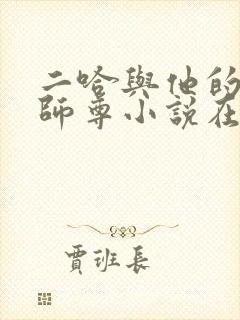 二哈與他的
師尊小說在
賈班長